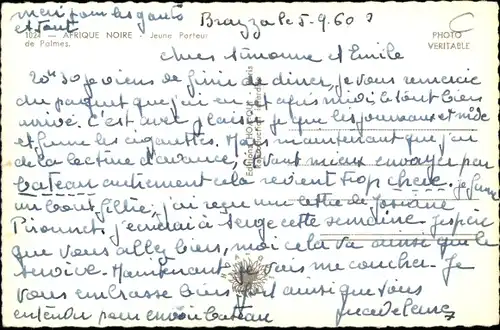 merci pour les gants
et tout
Brazza le 5-9-60
1024 - AFRIQUE NOIRE - Jeune Porteur
de Palmes.
PHOTO
VERITABLE
Chers Simonne et Emile
20h30 je viens de finir de diner, je vous remercie
du paquet que j'ai eu cet après midi le tout bien
arrivé. C'est avec plaisir que les journaux et
et fume les cigarettes. Mais maintenant que j'ai
de la lecture d'avance, vaut mieux envoyer par
bateau autrement cela revient trop chère. Je fume
un bout filtre, j'ai reçu une lettre de Josiane
j'ai à Serge cette semaine. J'espère
que vous allez bien, moi cela va ainsi que le
service. Maintenant vais me coucher. Je
vous embrasse bien fort ainsi que vous
entendu pour envoi bateau